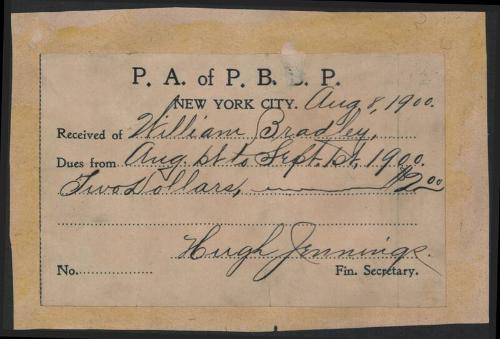 P. A. of P. B. B. P.
NEW YORK CITY. Aug 8, 1900.
Received of William Bradley,
Dues from Aug. 1st to Sept. 1st, 1900.
Two Dollars, $2.00
Hugh Jennings.
No. Fin. Secretary.